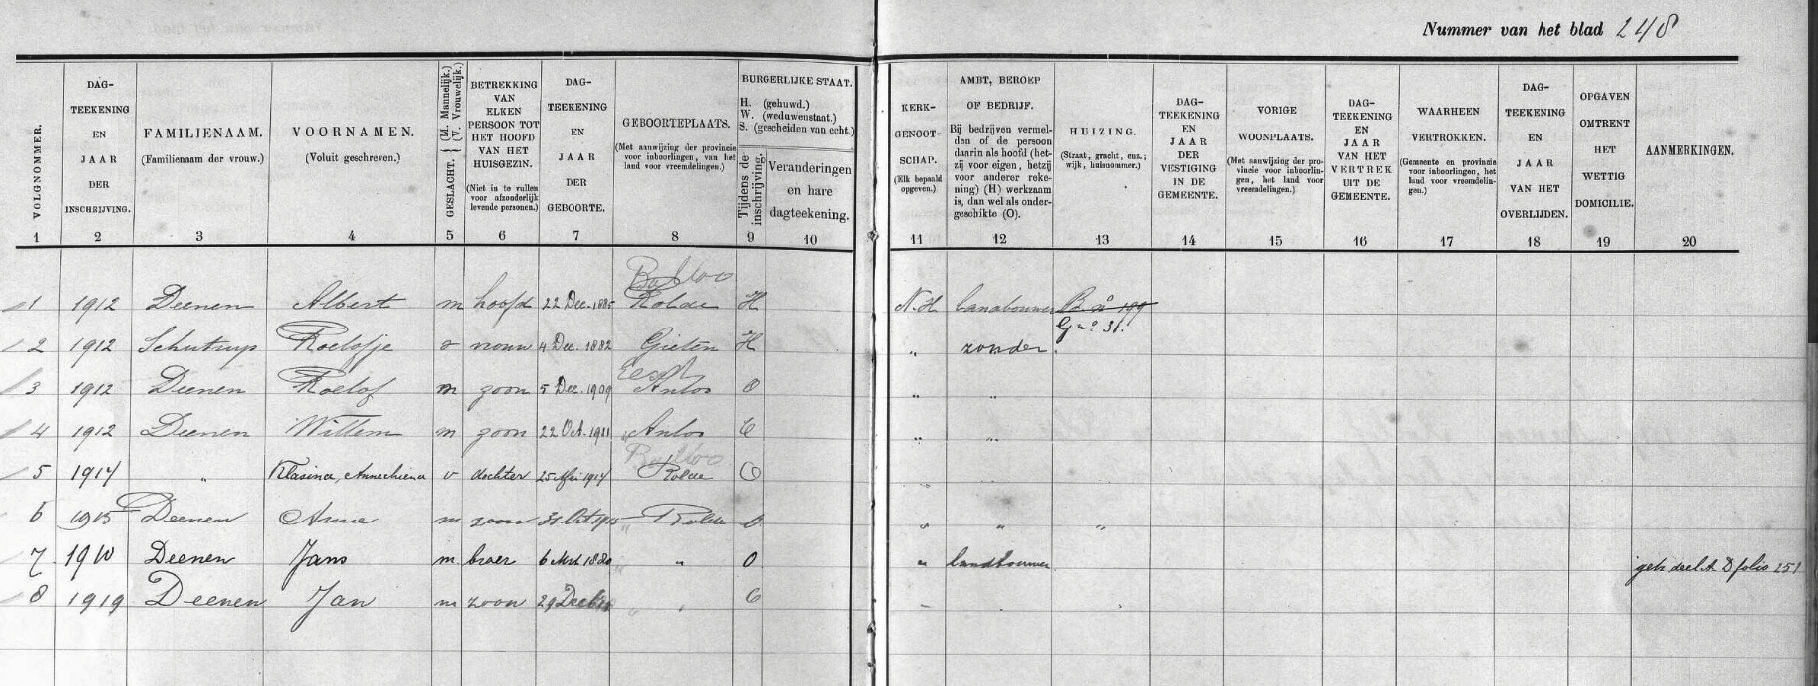 Nummer van het blad 248
VOLGNOMMER.
1
DAG-
TEEKENING
EN
JAAR
DER
INSCHRIJVING.
2
FAMILIENAAM.
(Familienaam der vrouw.)
3
VOORNAMEN.
(Voluit geschreven.)
4
GESLACHT. (M. Mannelijk.)
(V. Vrouwelijk.)
5
BETREKKING
VAN
ELKEN
PERSOON TOT
HET HOOFD
VAN HET
HUISGEZIN.
(Niet in te vullen
voor afzonderlijk
levende personen.)
6
DAG-
TEEKENING
EN
JAAR
DER
GEBOORTE.
7
GEBOORTEPLAATS.
(Met aanwijzing der provincie
voor inboorlingen, van het
land voor vreemdelingen.)
8
BURGERLIJKE STAAT.
H. (gehuwd.)
W. (weduwenstaat.)
S. (gescheiden van echt.)
Tijdens de
inschrijving.
9
Veranderingen
en hare
dagteekening.
10
KERK-
GENOOT-
SCHAP.
(Elk bepaald
opgeven.)
11
AMBT, BEROEP
OF BEDRIJF.
Bij bedrijven vermel-
den of de persoon
daarin als hoofd (het-
zij voor eigen, hetzij
voor anderer reke-
ning) (H) werkzaam
is, dan wel als onder-
geschikte (O).
12
HUIZING.
(Straat, gracht, enz.;
wijk, huisnummer.)
13
DAG-
TEEKENING
EN
JAAR
DER
VESTIGING
IN DE
GEMEENTE.
14
VORIGE
WOONPLAATS.
(Met aanwijzing der pro-
vincie voor inboorlin-
gen, het land voor
vreemdelingen.)
15
DAG-
TEEKENING
EN
JAAR
VAN HET
VERTREK
UIT DE
GEMEENTE.
16
WAARHEEN
VERTROKKEN.
(Gemeente en provincie
voor inboorlingen, het
land voor vreemdelin-
gen.)
17
DAG-
TEEKENING
EN
JAAR
VAN HET
OVERLIJDEN.
18
OPGAVEN
OMTRENT
HET
WETTIG
DOMICILIE.
19
AANMERKINGEN.
20
Balloo
1 1912 Deenen Albert m hoofd 22 Dec. 1885 Rolde H N.H landbouwer B no 199
G no 31.
2 1912 Schutrup Roelofje v vrouw 4 Dec. 1882 Gieten H „ zonder.
Eext
3 1912 Deenen Roelof m zoon 5 Dec. 1909 Anloo O „ „
4 1912 Deenen Willem m zoon 22 Oct. 1911 „ Anloo O „ „
Balloo
5 1914 „ Klasina, Annechiena v dochter 25 Mei 1914 Rolde O „
6 1915 Deenen m zoon 31 Oct 1915 „ Rolde O „ „ „
7 1910 Deenen Jans m broer 6 Mrt 1880 „ O „ landbouwer geh deel A D folio 251
8 1919 Deenen Jan m zoon 29 „ O „